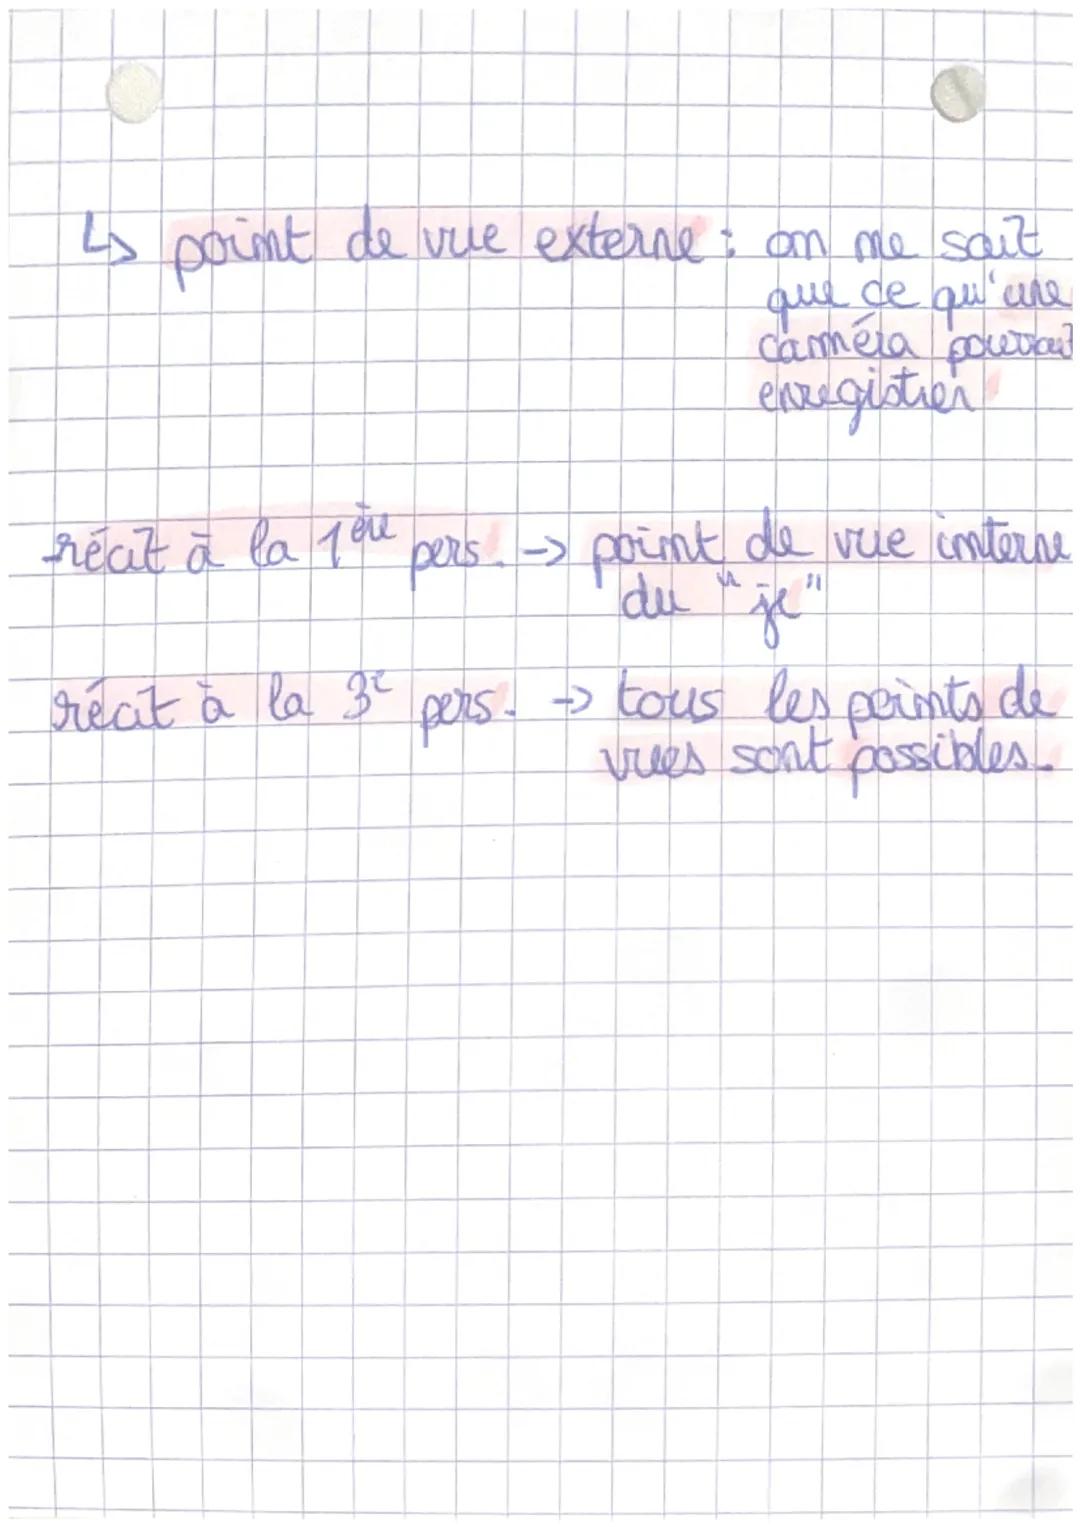 ↳ point de vue externe : on ne sait
que ce qu'une
caméra pourrait
enregistrer
récit à la 1ère pers. -> point de vue interne
du "je"
récit à la 3e pers. -> tous les points de
vues sont possibles.